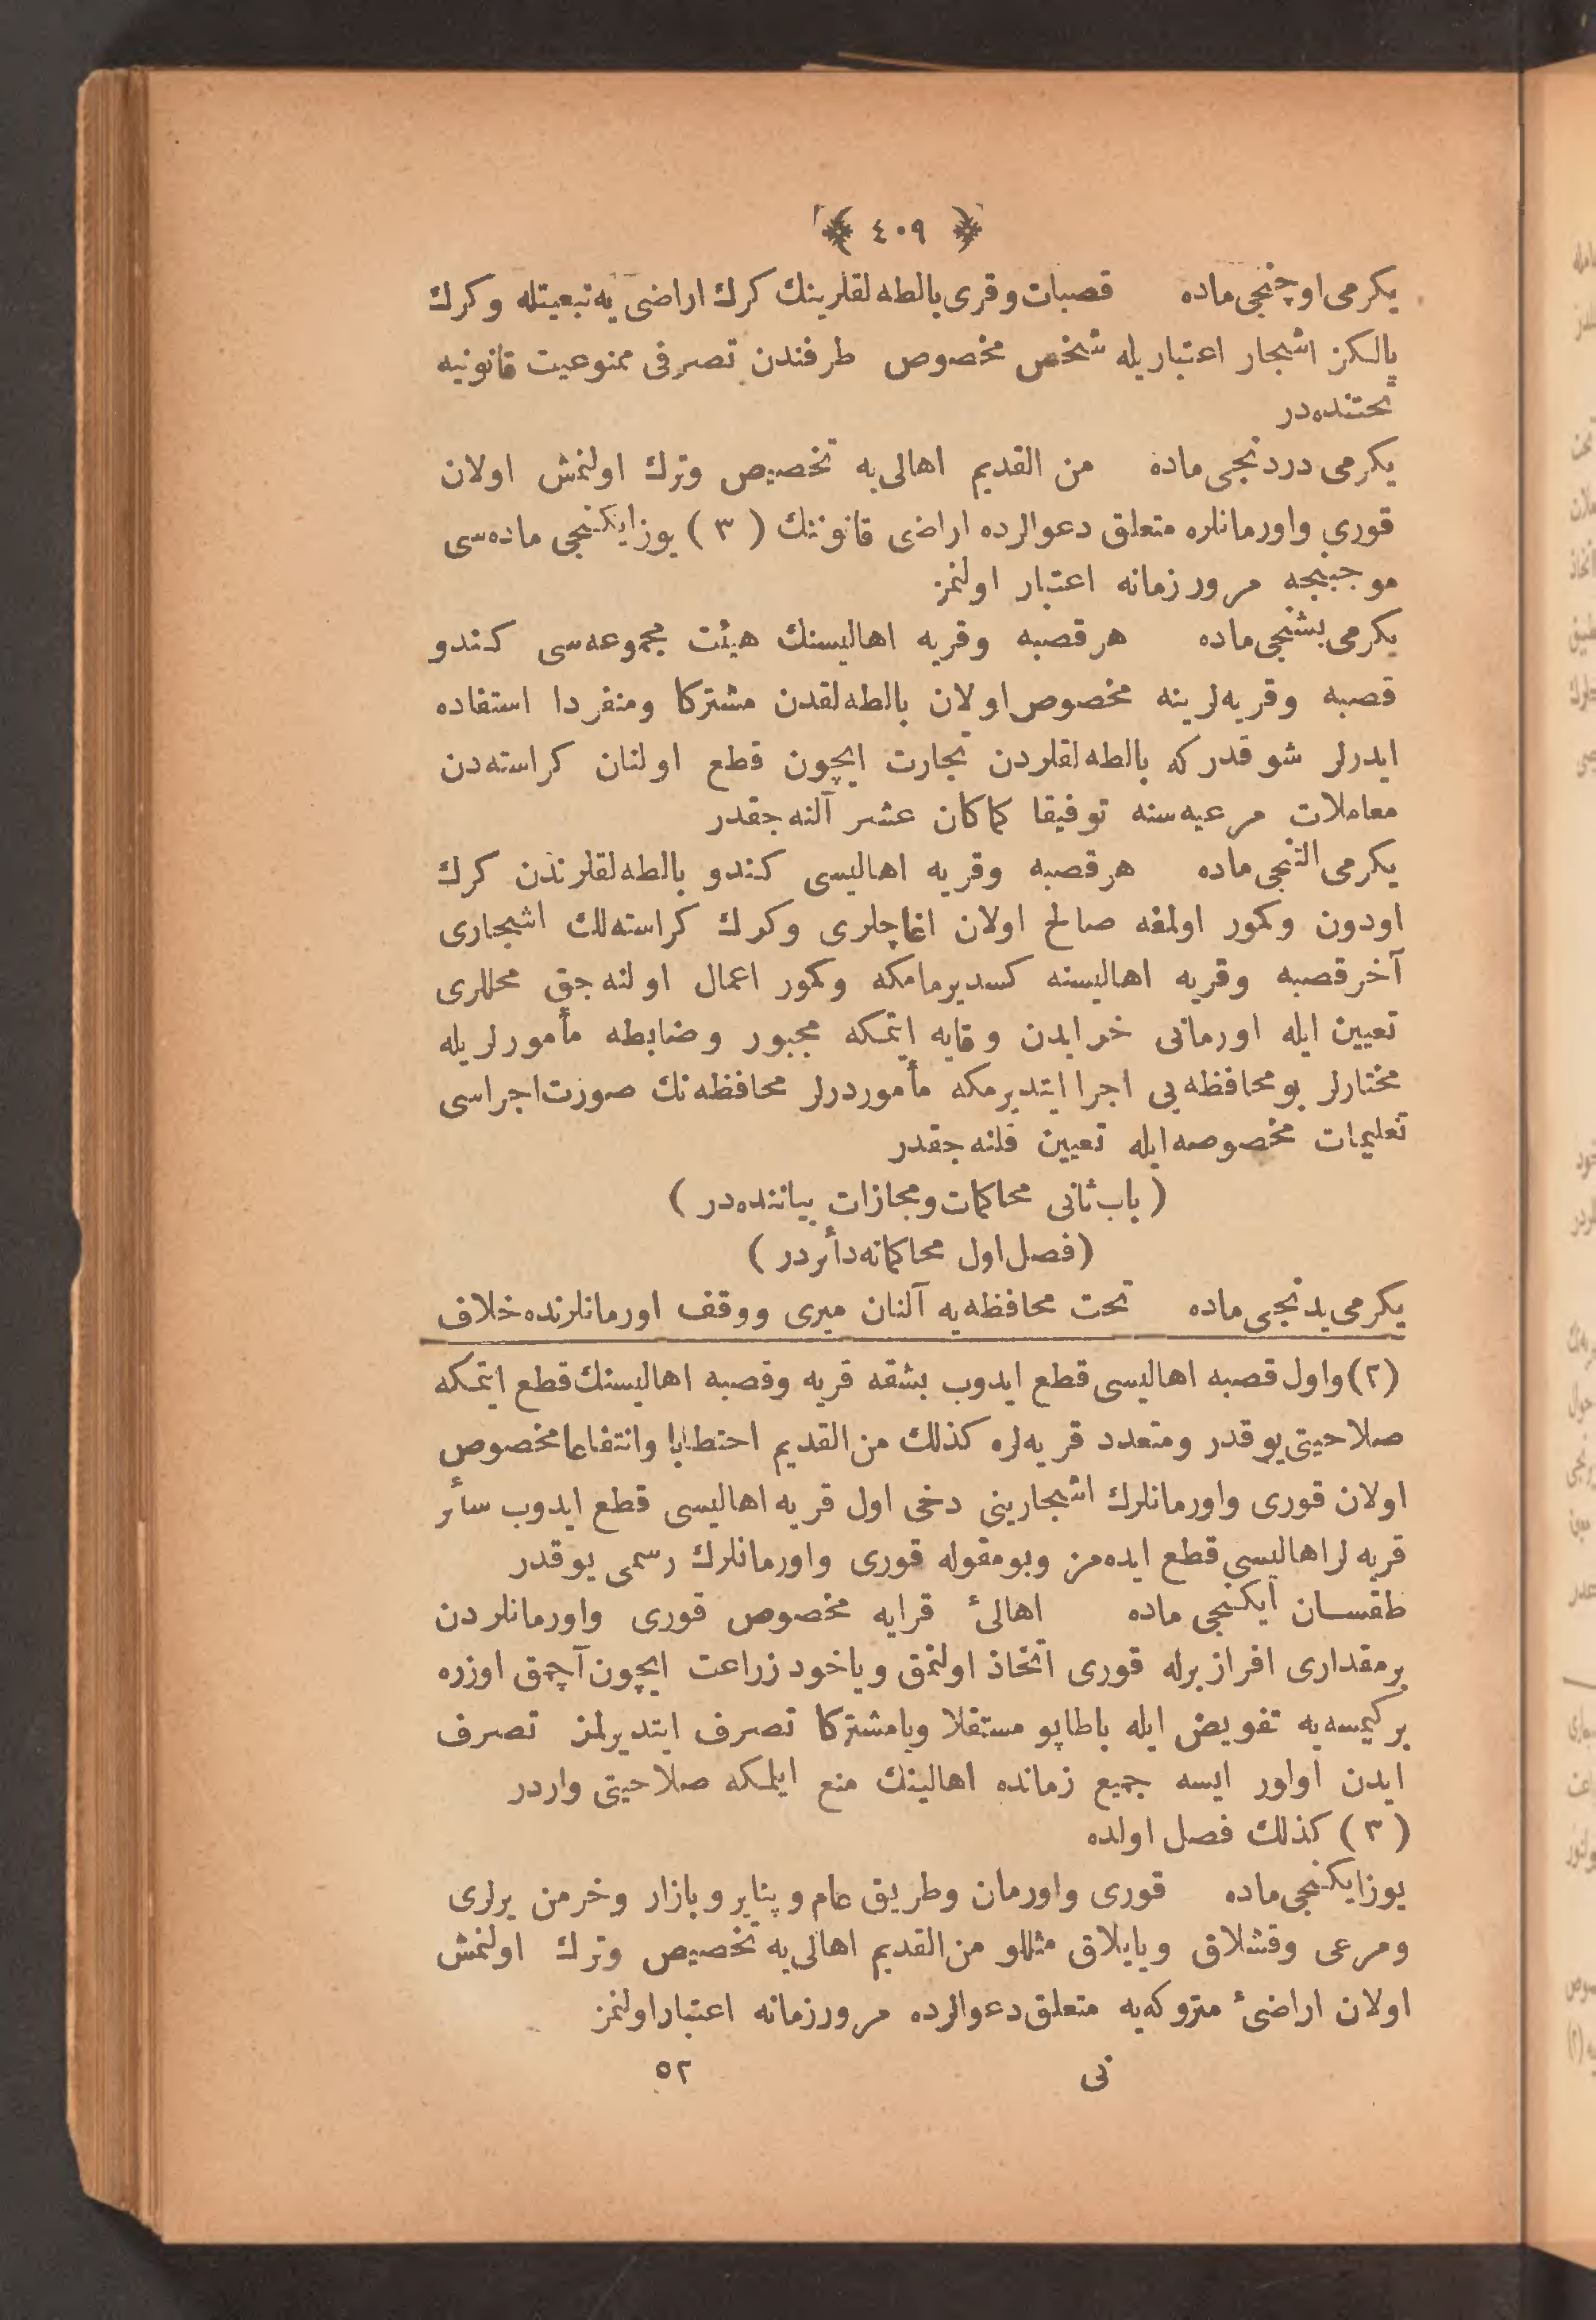 ﴿ ٤٠٩ ﴾
يكرمى اوچنجى ماده قصبات وقرى بالطه‌لقلرينك كرك اراضى يه تبعيتله وكرك
يالكز اشجار اعتباريله شخص مخصوص طرفندن تصرفى ممنوعيت قانونيه
تحتنده‌در
يكرمى دردنجى ماده من القديم اهالى‌يه تخصيص وترك اولنمش اولان
قورى واورمانلره متعلق دعوالرده اراضى قانوننك (٣) يوزايكنجى ماده‌سى
موجبنجه مرور زمانه اعتبار اولنمز
يكرمى بشنجى ماده هرقصبه وقريه اهاليسنك هيئت مجموعه‌سى كندو
قصبه وقريه‌لرينه مخصوص اولان بالطه‌لقدن مشتركا ومنفردا استفاده
ايدرلر شو قدركه بالطه‌لقلردن تجارت ايچون قطع اولنان كراسته‌دن
معاملات مرعيه‌سنه توفيقا كماكان عشر آلنه‌جقدر
يكرمى التنجى ماده هرقصبه وقريه اهاليسى كندو بالطه‌لقلرندن كرك
اودون وكمور اولمغه صالح اولان اغاچلرى وكرك كراسته‌لك اشجارى
آخر قصبه وقريه اهاليسنه كسديرمامكه وكمور اعمال اولنه‌جق محللرى
تعيين ايله اورمانى خرابدن وقايه ايتمكه مجبور وضابطه مأمورلريله
مختارلر بومحافظه‌يى اجرا ايتديرمكه مأموردرلر محافظه‌نك صورت اجراسى
تعليمات مخصوصه ايله تعيين قلنه‌جقدر
(باب ثانى محاكمات ومجازات بياننده‌در)
(فصل اول محاكماته دأئردر)
يكرمى يدنجى ماده تحت محافظه‌يه آلنان ميرى ووقف اورمانلرنده خلاف
(٢) واول قصبه اهاليسى قطع ايدوب بشقه قريه وقصبه اهاليسنك قطع ايتمكه
صلاحيتى يوقدر ومتعدد قريه‌لره كذلك من القديم احتطابا وانتفاعا مخصوص
اولان قورى واورمانلرك اشجارينى دخى اول قريه اهاليسى قطع ايدوب سأئر
قريه‌لر اهاليسى قطع ايده‌مز وبومقوله قورى واورمانلرك رسمى يوقدر
طقسان ايكنجى ماده اهالئ قرايه مخصوص قورى واورمانلردن
برمقدارى افراز برله قورى اتخاذ اولنمق وياخود زراعت ايچون آچمق اوزره
بركيمسه‌يه تفويض ايله باطاپو مستقلا ويامشتركا تصرف ايتديرلمز تصرف
ايدن اولور ايسه جميع زمانده اهالينك منع ايلمكه صلاحيتى واردر
(٣) كذلك فصل اولده
يوزايكنجى ماده قورى واورمان وطريق عام وپناير وبازار وخرمن يرلرى
ومرعى وقشلاق ويايلاق مثللو من القديم اهالى‌يه تخصيص وترك اولنمش
اولان اراضئ متروكه‌يه متعلق دعوالرده مرورزمانه اعتباراولنمز
نى ٥٢